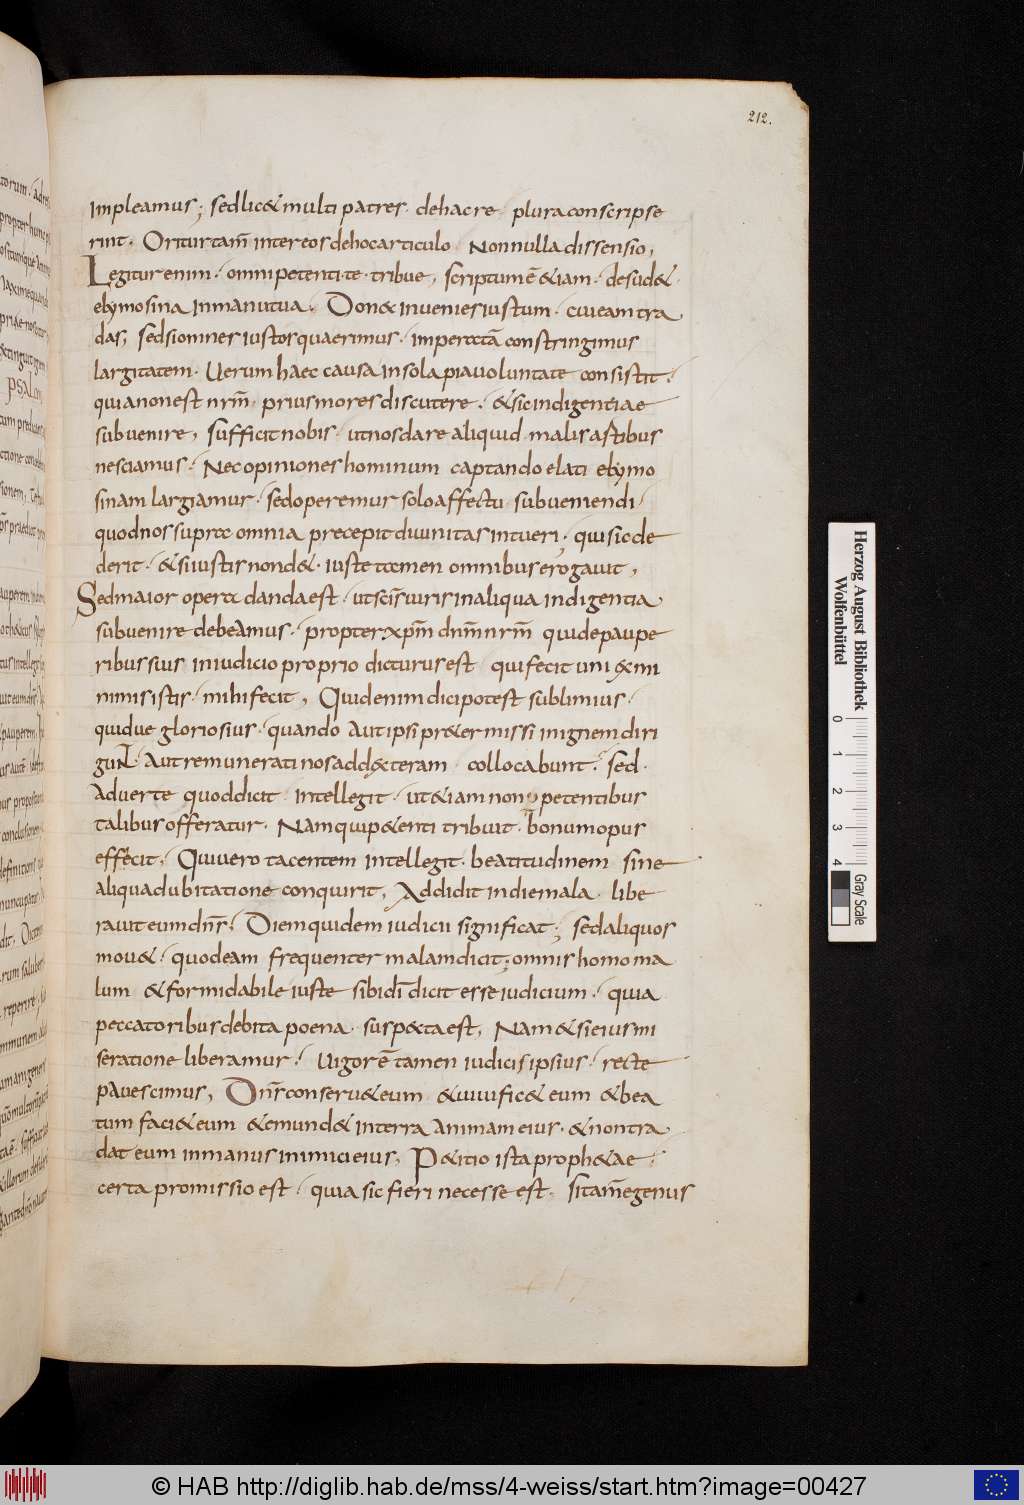 212.
impleamus; sed lic& multi patres · de hac re · plura conscripse
rint · Oritur tam̄ inter eos de hoc articulo · Non nulla dissensio,
Legitur enim · omni petenti te · tribue, scriptum ē &iam · desud&
elymosina in manu tua · Don& invenies iustum · cui eam tra
das, sed si omnes iustos quaerimus · imperatā constringimus
largitatem · Uerum haec causa in sola pia voluntate consistit ·
quia non est nr̄m · prius mores discutere · & sic indigentiae
subuenire, sufficit nobis · ut nos dare aliquid malis actibus
nesciamus · Nec opiniones hominum captando elati elymo
sinam largiamur · sed operemur solo affectu subueniendi ·
quod nos supra omnia precepit diuinitas intueri · qui sic de
derit · & si iustis non d& · iuste tamen omnibus erogauit,
Sed maior opera danda est · ut scīs uiris in aliqua indigentia
subuenire debeamus · propter xp̄m dn̄m nr̄m qui de paupe
ribus suis in iudicio proprio dicturus est qui fecit uni ex mi
nimis istis · mihi fecit, Quid enim dici potest sublimius ·
quid ue gloriosius · quando aut ipsi pr&ermissi in ignem diri
gunt · aut remunerati nos ad dexteram collocabunt · sed ·
aduerte quod dicit intellegit · ut &iam non petentibus
talibus offeratur · Nam qui p&enti tribuit · bonum opus
effecit, Qui uero tacentem intellegit · beatitudinem sine
aliqua dubitatione conquirit, Addidit in die mala · libe
rauit eum dn̄s · Diem quidem iudicii significat; sed aliquos
mou& · quod eam frequenter malam dicit; omnis homo ma
lum & formidabile iuste sibi dī dicit esse iudicium · quia
peccatoribus debita poena · suspecta est, Nam & si eius mi
seratione liberamur · Uigorē tamen iudicis ipsius · recte
pauescimus, Dn̄s conseru& eum & uiuific& eum & bea
tum faci& eum & emund& in terra animam eius · & non tra
dat eum in manus inimici eius, P&itio ista proph&ae ·
certa promissio est · quia sic fieri necesse est · si tam̄ egenus
Herzog August Bibliothek
Wolfenbüttel
0 1 2 3 4
Gray Scale
© HAB http://diglib.hab.de/mss/4-weiss/start.htm?image=00427